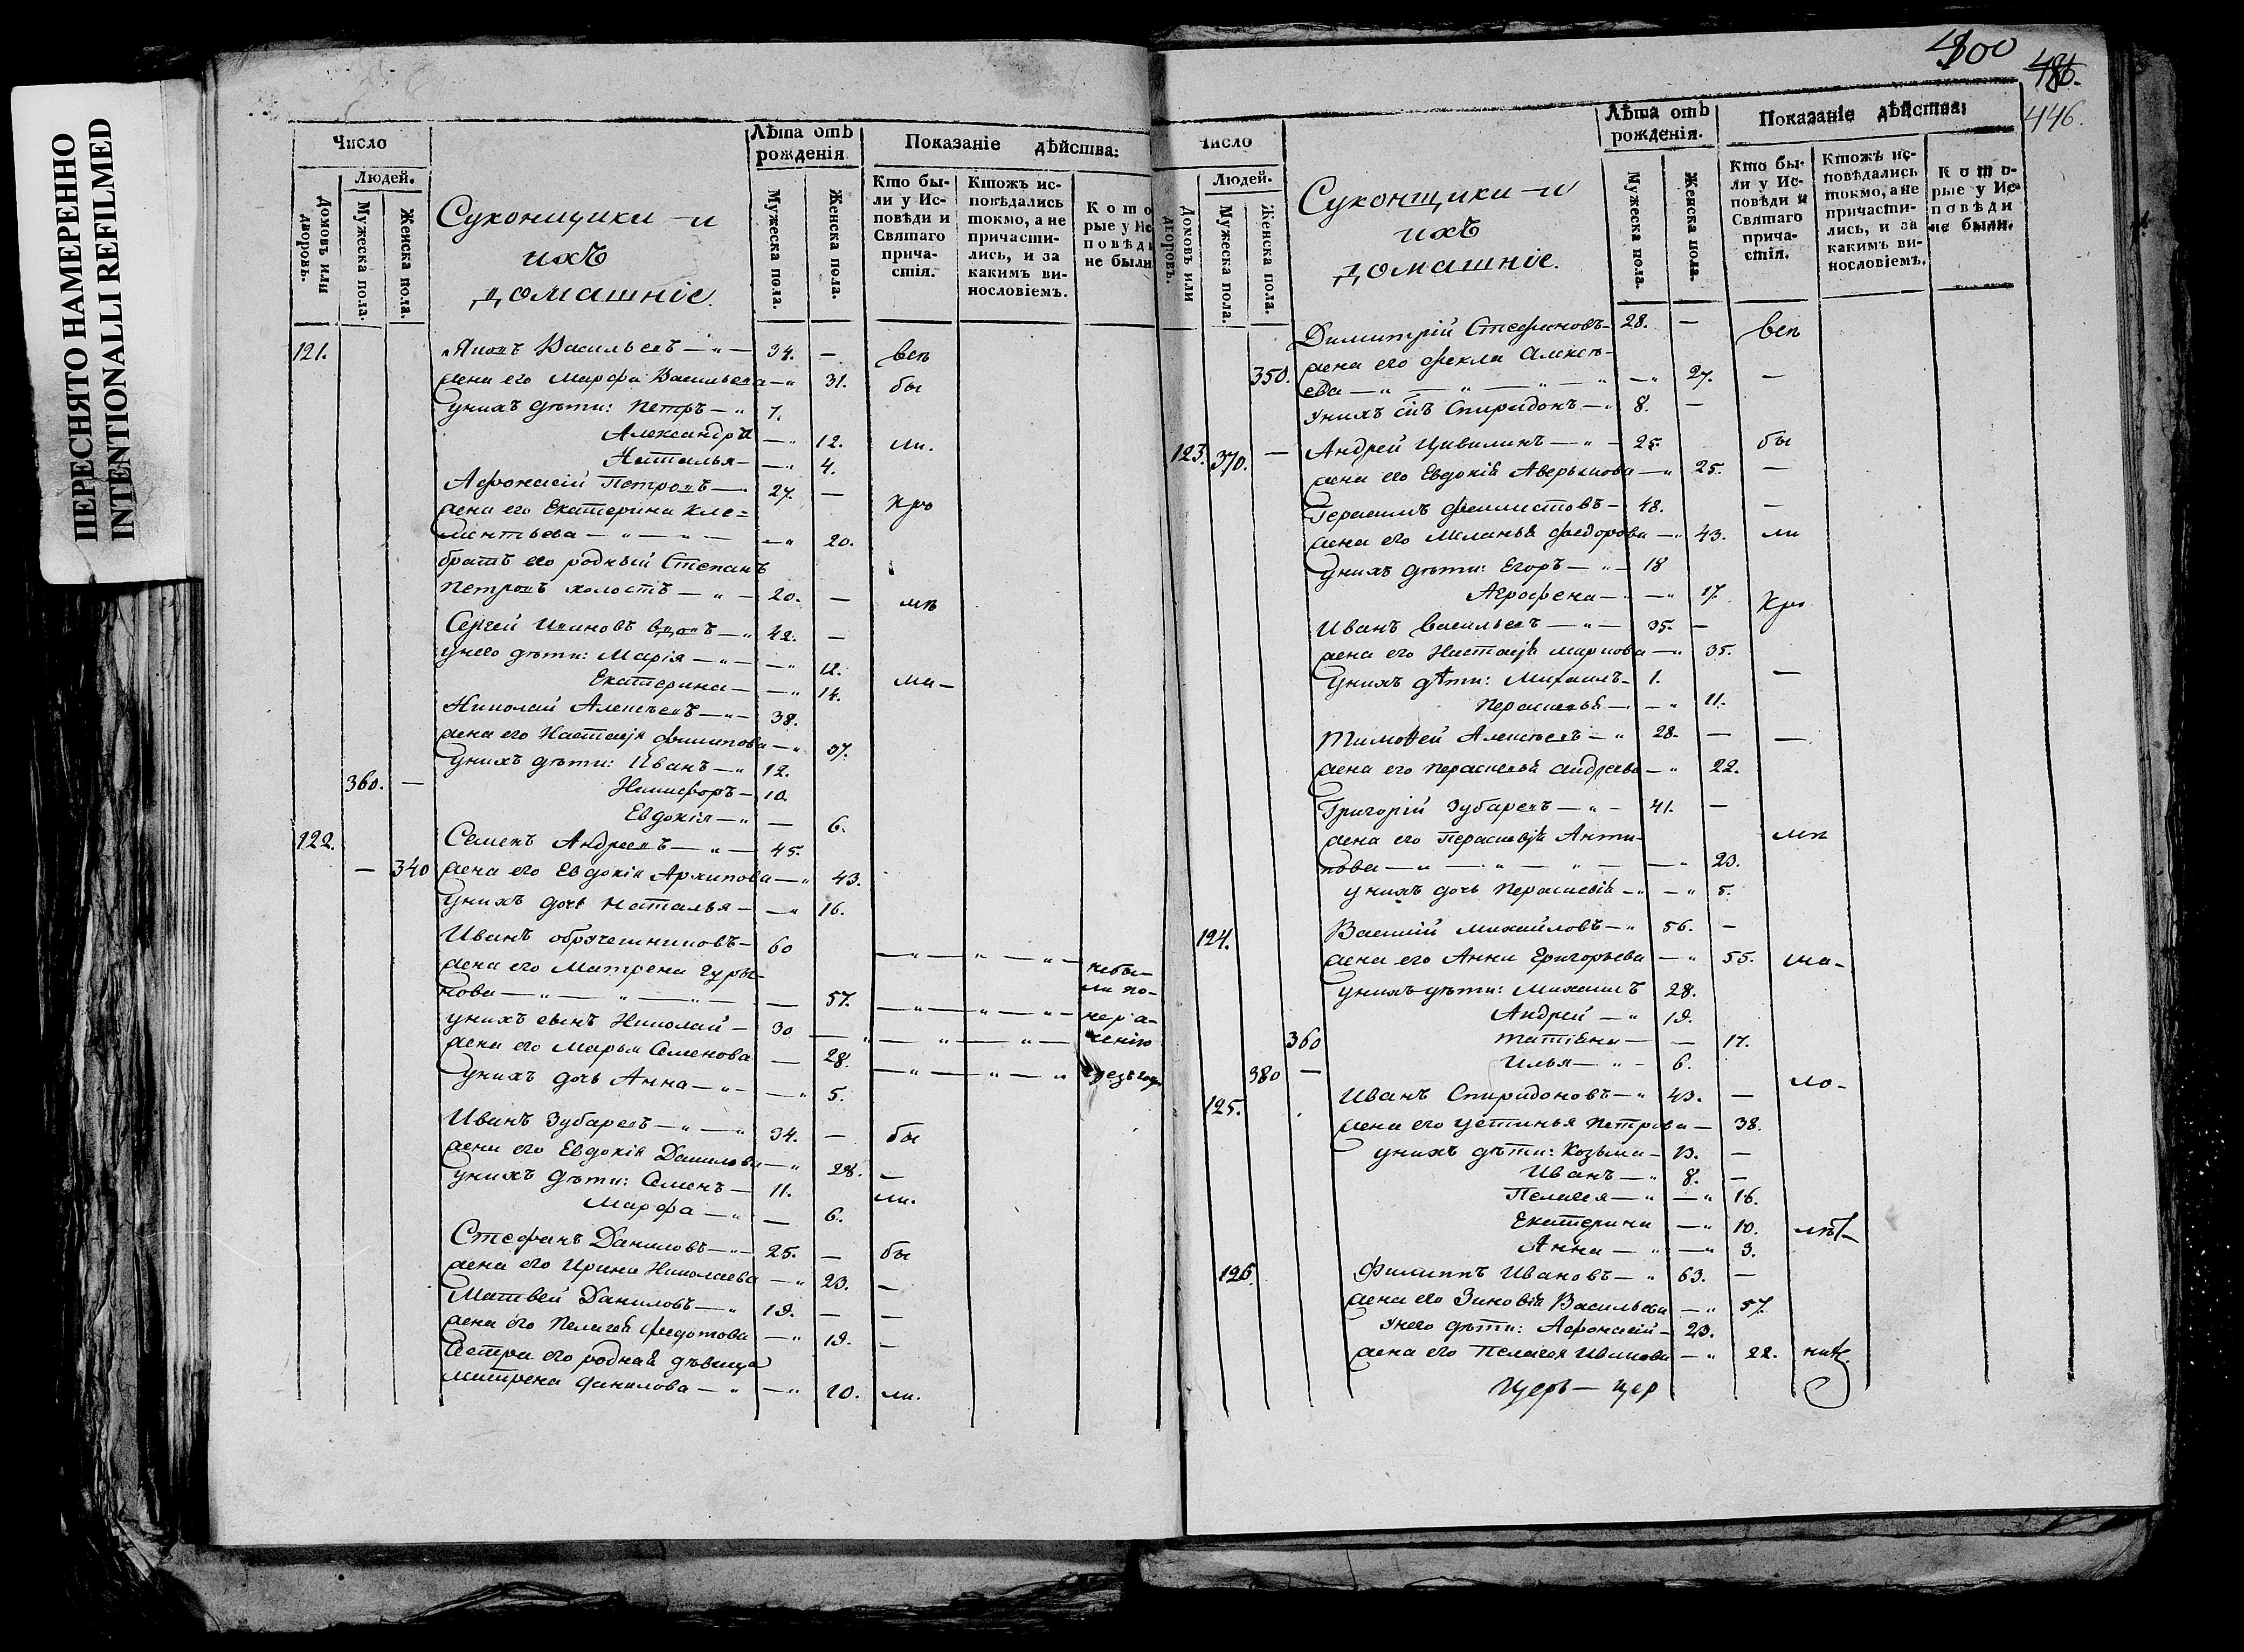 ПЕРЕСНЯТО НАМЕРЕННО
INTENTIONALLI REFILMED
Число
Людей.
Домовъ или дворовъ.
Мужеска пола.
Женска пола.
Суконщики и
ихъ
домашніе.
Лѣта отъ рожденія
Мужеска пола.
Женска пола.
Показаніе дѣйства:
Кто были у Исповѣди и Святаго причастія.
Ктожъ исповѣдались токмо, а не причастились, и за какимъ винословіемъ.
Которые у Исповѣди не были
121. Васильевъ — 34. — всѣ
жена его Марфа Васильева — 31. бы
у нихъ дѣти: Петръ — 7.
Александра — 12. ли.
Наталья — 4.
Афонасій Петровъ — 27. —
жена его Екатерина Кле=
ментьева — 20.
братъ его родный Степанъ
Петровъ холостъ — 20. —
Сергей Ивановъ вдовъ — 42. —
у него дѣти: Марія — 12.
Екатерина — 14.
Николай Алексѣевъ — 38.
жена его Настасія Филипова — 37.
у нихъ дѣти: Иванъ — 12.
360. — Никифоръ — 10.
Евдокія — 6.
122. Семенъ Андреевъ — 45.
— 340 жена его Евдокія Архипова — 43.
у нихъ дочь Наталья — 16.
Иванъ — 60
жена его Матрена Гурья-
нова — 57. небы-
ли по-
у нихъ сынъ Николай — 30 — нера-
жена его Марья Семенова — 28.ченію
у нихъ дочь Анна — 5.
Иванъ Зубаревъ — 34. — бы
жена его Евдокія Данилова — 28. —
у нихъ дѣти: Семенъ — 11. ли.
Марфа — 6.
Стефанъ Даниловъ — 25. — бы
жена его Ирина Николаева — 23. —
Матвей Даниловъ — 19. — —
жена его Пелагея Федотова — 19. —
Сестра его родная дѣвица
Матрена Данилова — 20. ли.
400
486.
446.
Число
Людей.
Домовъ или дворовъ.
Мужеска пола.
Женска пола.
Суконщики и
ихъ
домашніе.
Лѣта отъ рожденія.
Мужеска пола.
Женска пола.
Показаніе дѣйства:
Кто были у Исповѣди и Святаго причастія.
Ктожъ исповѣдались токмо, а не причастились, и за какимъ винословіемъ.
Которые у Исповѣди не были.
Димитрій Стефановъ — 28. — всѣ
жена его Фекла Алексѣ-
350. ева — 27. —
у нихъ сынъ Спиридонъ — 8. —
123. 370. — Андрей Цивилинъ — 25. бы
жена его Евдокія Аверьянова — 25. —
Герасимъ — 48. —
жена его Меланья Федорова — 43. ли
у нихъ дѣти: Егоръ — 18
Агрофена — 17.
Иванъ Васильевъ — 35. —
жена его Настасія — 35.
у нихъ дѣти: Михаилъ — 1. —
11.
Тимоѳей Алексѣевъ — 28. — —
жена его Андреева — 22.
Григорій Зубаревъ — 41. —
жена его Анти-
пова — 23.
у нихъ дочь — 5.
124. Василій Михайловъ — 56. —
жена его Анна Григорьева — 55. ма-
у нихъ дѣти: Михаилъ 28.
Андрей — 19.
360 Татіяна — 17.
380 — Илья — 6. ло-
125. Иванъ Спиридоновъ — 43. —
жена его Устинья Петрова — 38.
у нихъ дѣти: Козьма — 13. —
Иванъ — 8. —
Пелагея — 16.
Екатерина — 10. лѣт-
Анна — 3.
126. Филиппъ Ивановъ — 63. —
жена его Зиновія Васильева — 57.
у него дѣти: Афонасій — 23.
жена его Пелагея Иванова — 22.